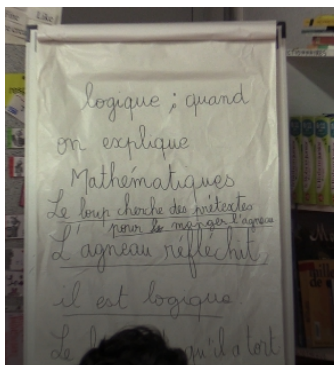 logique ; quand
on explique
Mathématiques
Le loup cherche des prétextes
pour le manger l'agneau
L'agneau réfléchit,
il est logique.
Le qu'il a tort